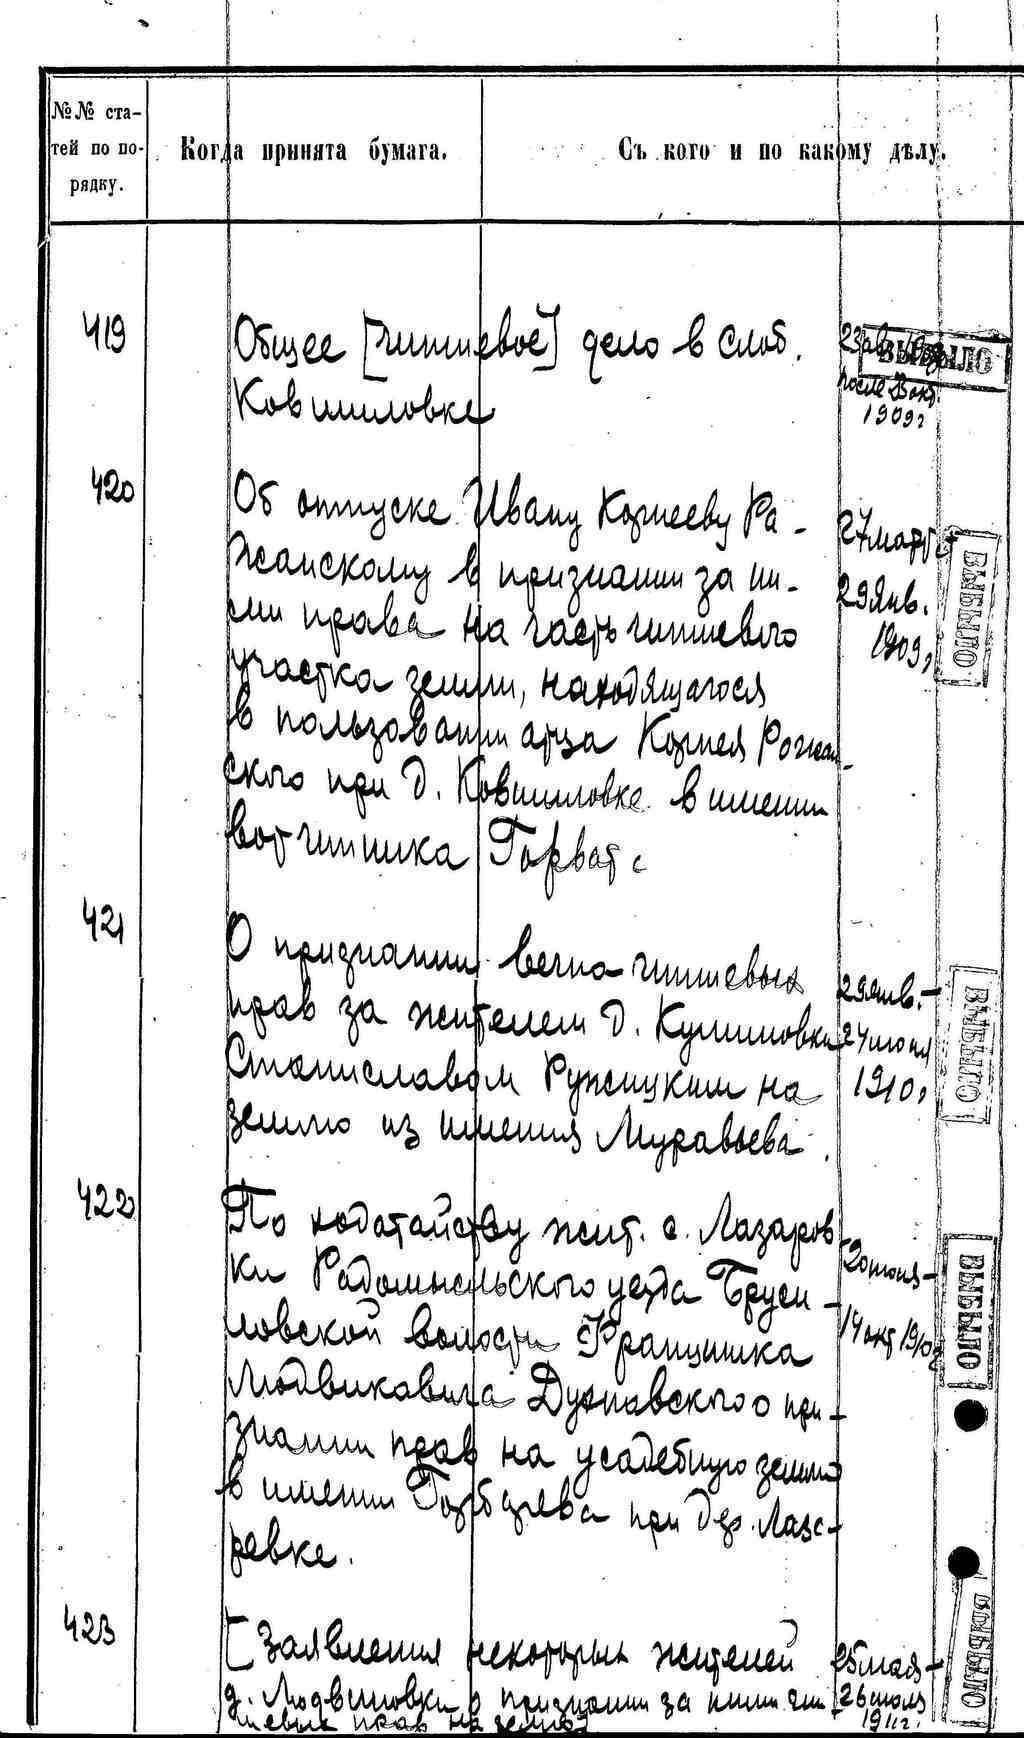 №№ ста-
тей по по-
рядку.
Когда принята бумага.
Съ кого и по какому дѣлу.
419
Общее [чиншевое] дело в слоб.
Ковшиловке
23
после 13 окт.
1909г
ВЫБЫЛО
420
Об отпуске Ивану Корнееву Ра-
жанскому в признании за ни-
ми права на часть чиншевого
участка земли, находящагося
в пользовании отца Корнея Рожан-
ского при д. Ковшиловке в имении
вотчинника Горват
27 март
29 Янв.
1909г
ВЫБЫЛО
421
О признании вечно чиншевых
прав за жителем д.
Станиславом Ружицким на
землю из имения Муравьева.
29 янв.-
24 июня
1910г
ВЫБЫЛО
422
По ходатайству жит. с. Лазаров-
ки Радомысльского уезда Бруси-
ловской волости Францишка
Людвиковича о при-
знании прав на усадебную землю
в имении при дер. Лаза-
ревке.
20 июня-
14 окт 1910г
ВЫБЫЛО
423
[Заявления некоторых жителей
д. Людвиновки о признании за ними чин
шевых прав на землю]
25 мая-
26 июля
1911г.
ВЫБЫЛО